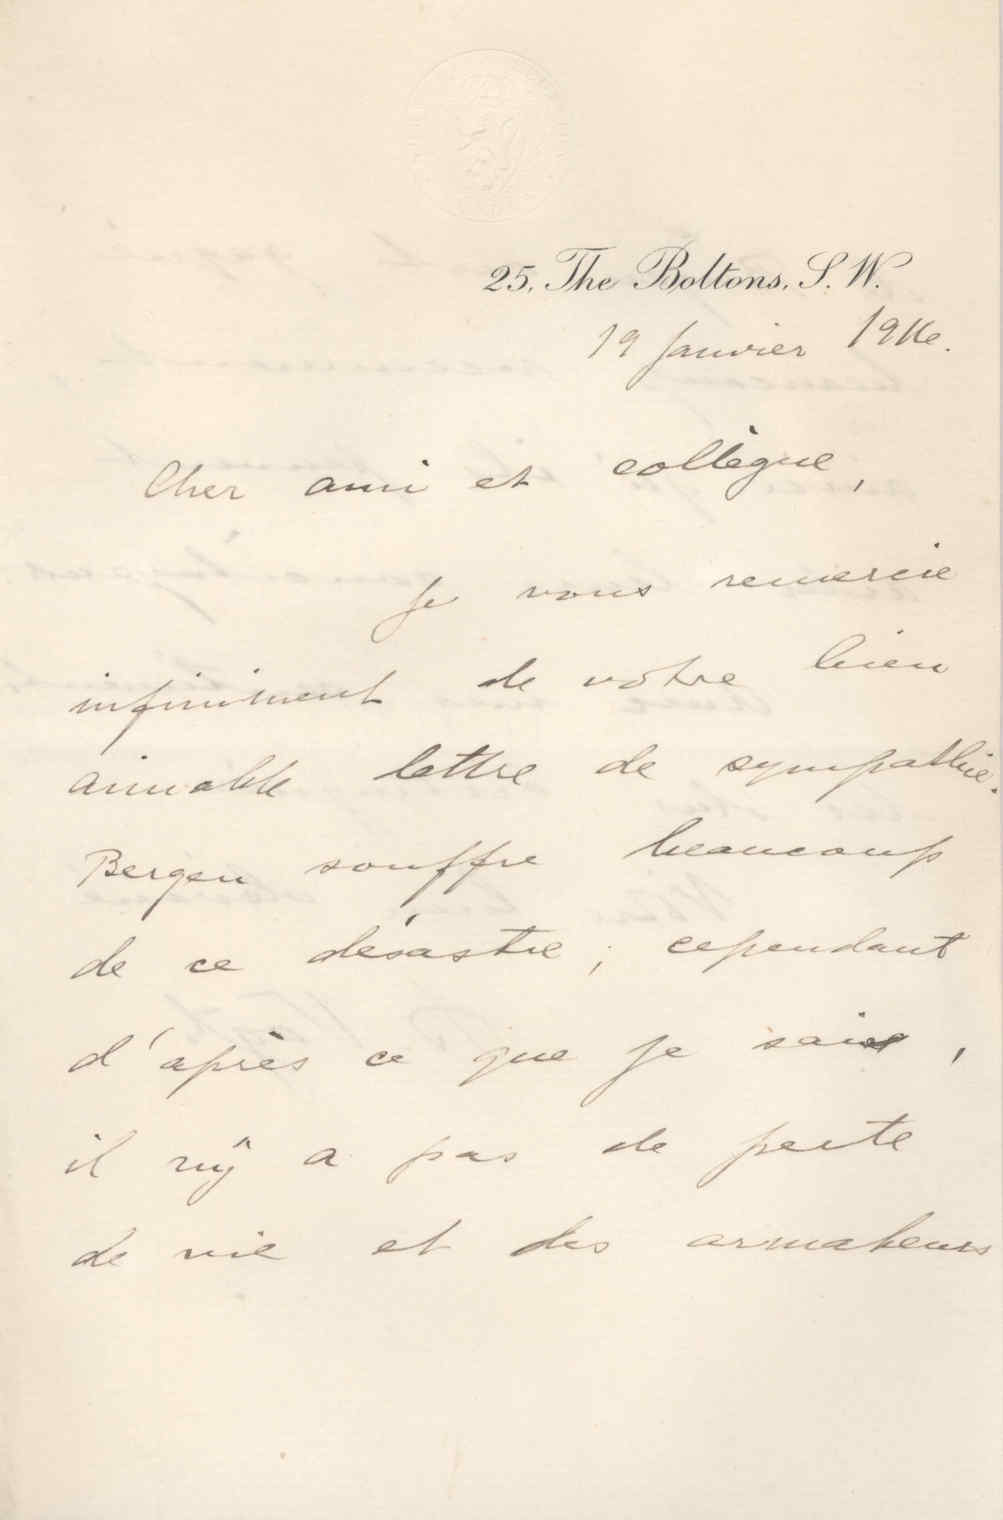 25, The Boltons, S. W.
19 Janvier 1916.
Cher ami et collègue,
Je vous remercie
infiniment de votre bien
aimable lettre de sympathie.
Bergen souffre beaucoup
de ce désastre ; cependant
d'après ce que je sais,
il n'y a pas de perte
de vie et des armateurs